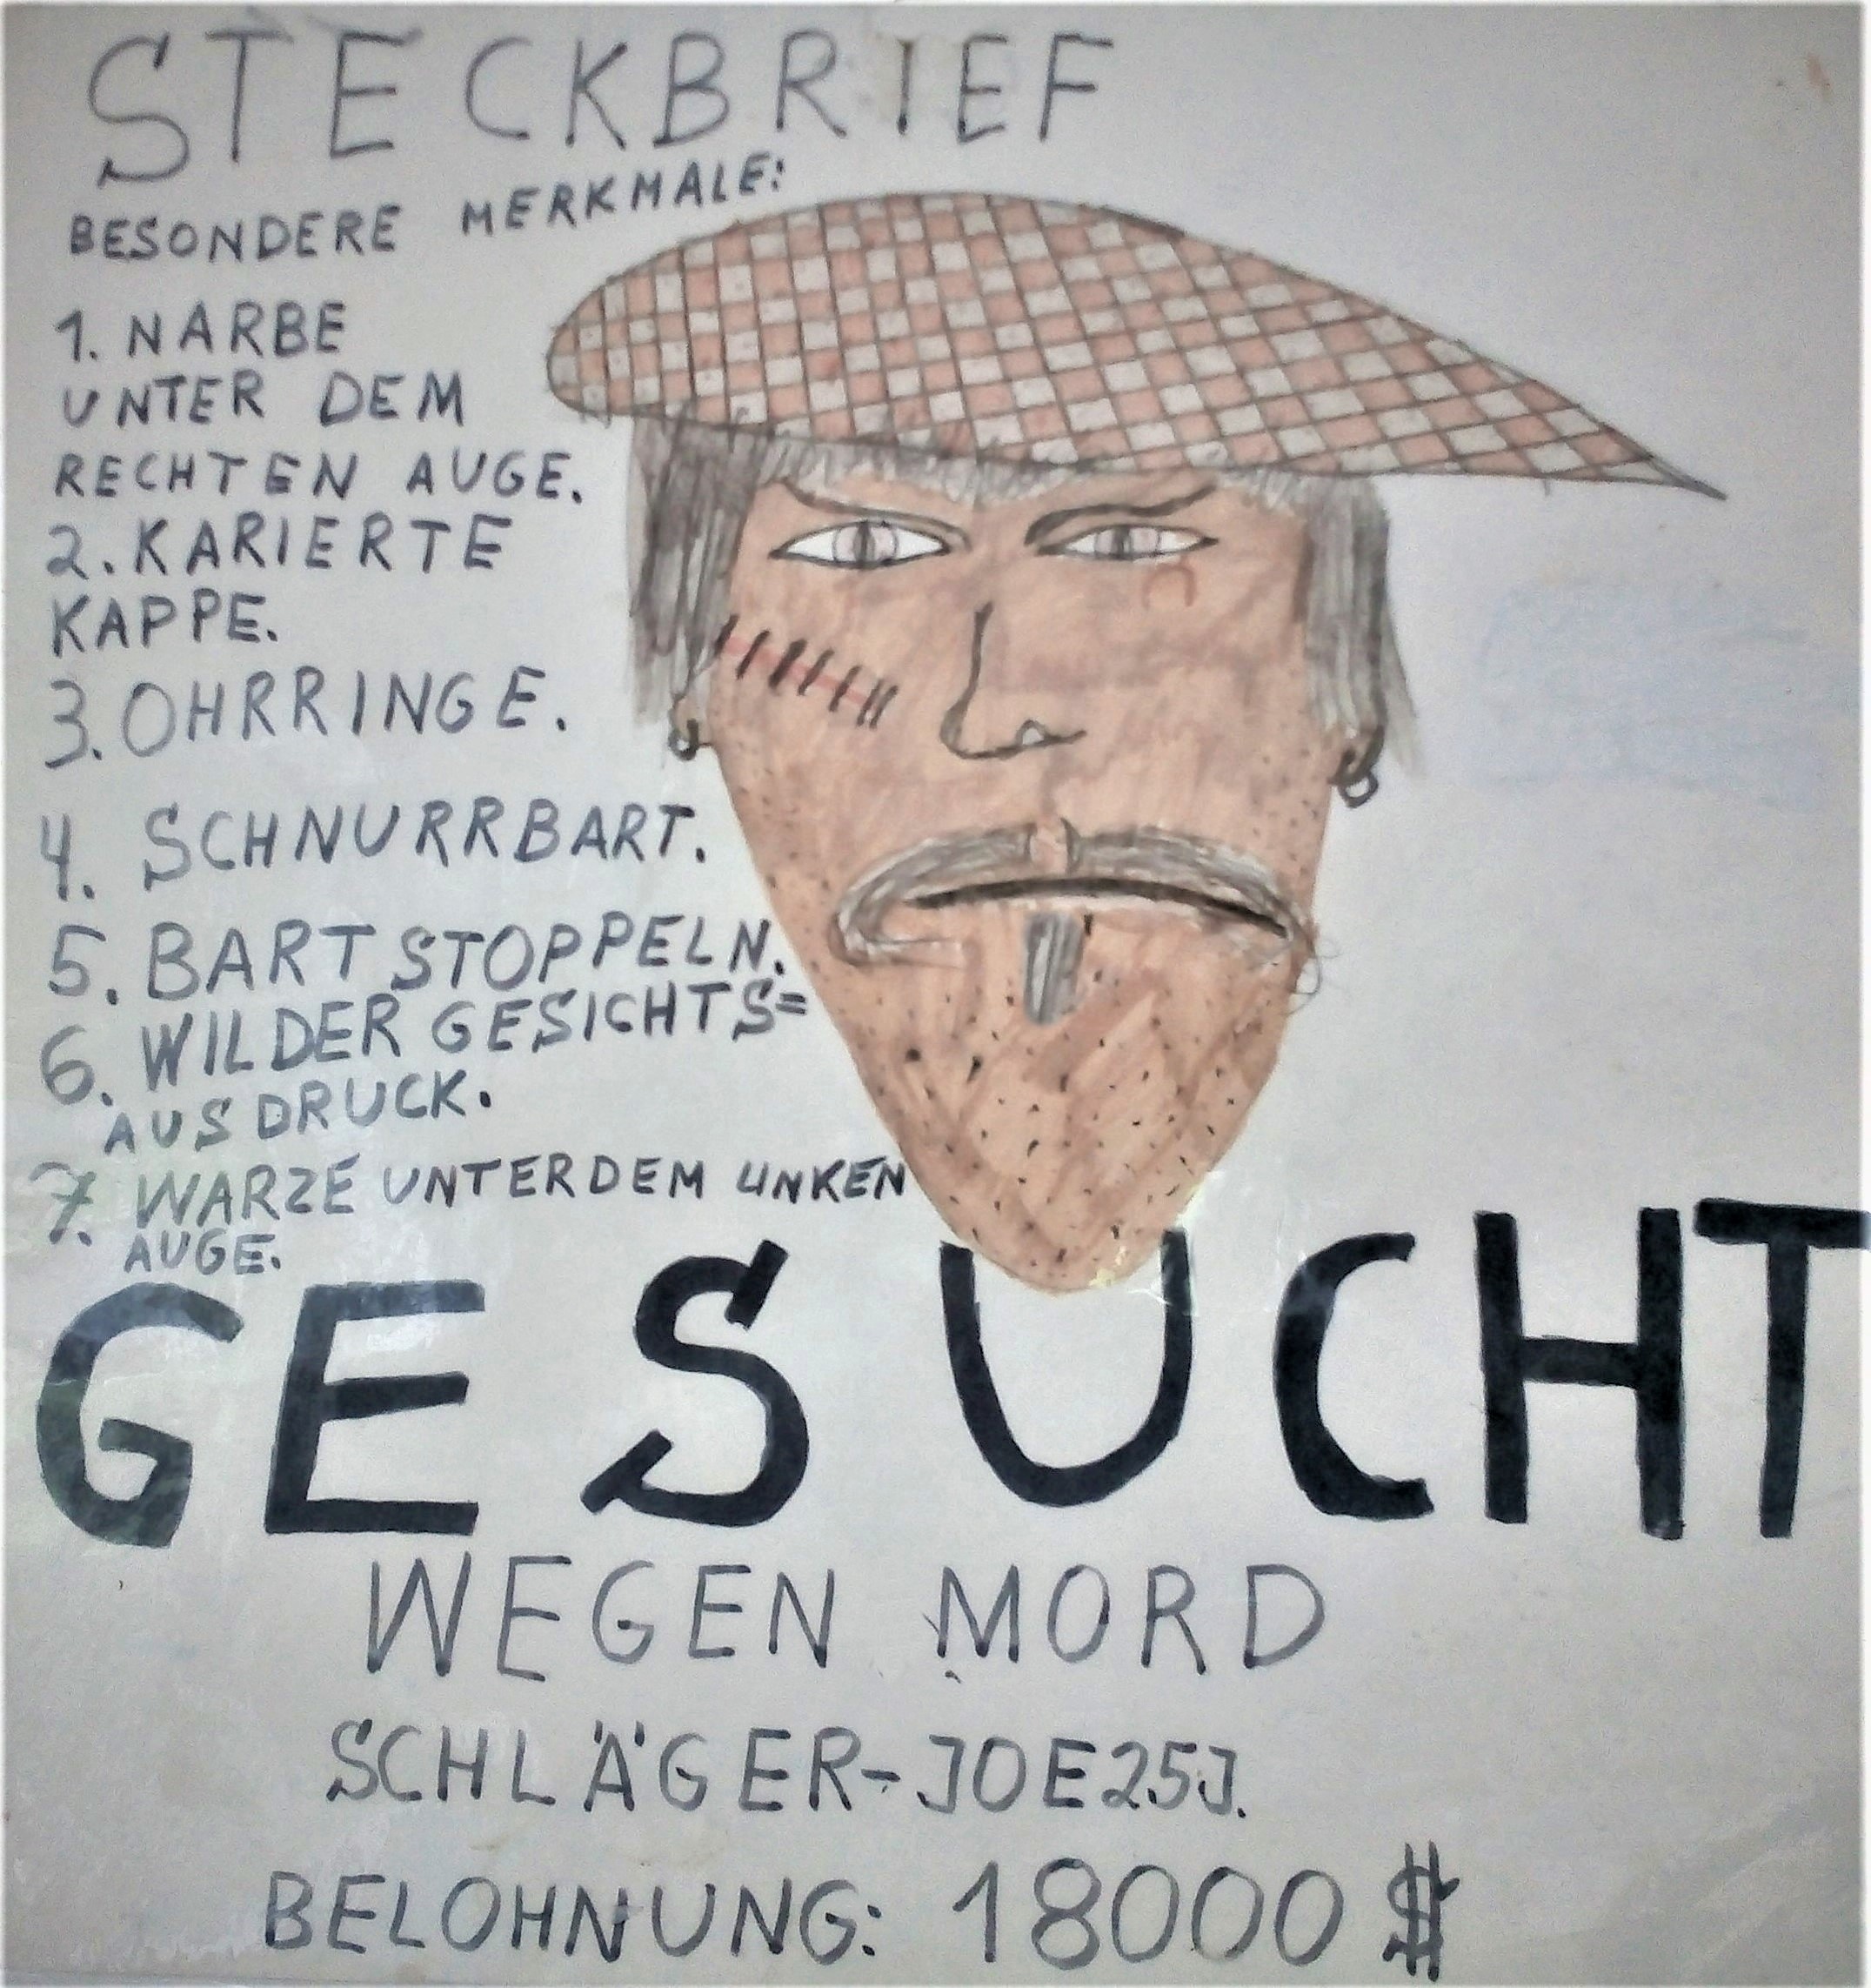 STECKBRIEF
BESONDERE MERKMALE:
1. NARBE
UNTER DEM
RECHTEN AUGE.
2. KARIERTE
KAPPE.
3. OHRRINGE.
4. SCHNURRBART.
5. BARTSTOPPELN.
6. WILDER GESICHTS=
AUSDRUCK.
7. WARZE UNTER DEM LINKEN
AUGE.
GESUCHT
WEGEN MORD
SCHLÄGER-JOE 25J.
BELOHNUNG: 18000 $